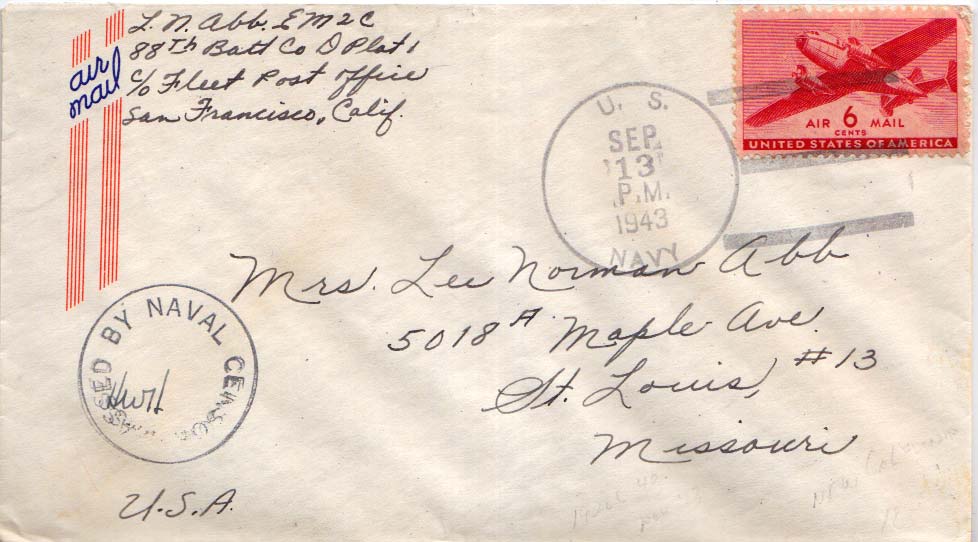 L. N. Abb. EM2C
88th Batt Co D Plat 1
c/o Fleet Post Office
San Francisco, Calif.
air
mail
U. S.
SEP
13
P.M.
1943
NAVY
AIR 6 MAIL
CENTS
UNITED STATES OF AMERICA
Mrs. Lee Norman Abb
5018A Maple Ave.
St. Louis, #13
Missouri
PASSED BY NAVAL CENSOR
U.S.A.